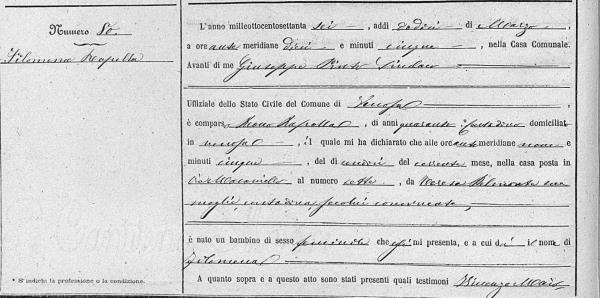 Numero 80.
Filomena Rapolla
* S' indichi la professione o la condizione.
L'anno milleottocentosettanta sei, addì dodici di Marzo
a ore ante meridiane dieci e minuti cinque, nella Casa Comunale.
Avanti di me Giuseppe Pinto Sindaco
Uffiziale dello Stato Civile del Comune di Venosa
è comparso Rapolla, di anni quaranta contadino domiciliat
in Venosa, il quale mi ha dichiarato che alle ore ante meridiane nove e
minuti cinque, del dì undici del corrente mese, nella casa posta in
al numero sette, da Teresa sua
moglie, contadina seco lui convivente,
è nato un bambino di sesso femminile che mi presenta, e a cui dà il nome di
Filomena
A quanto sopra e a questo atto sono stati presenti quali testimoni Vincenzo